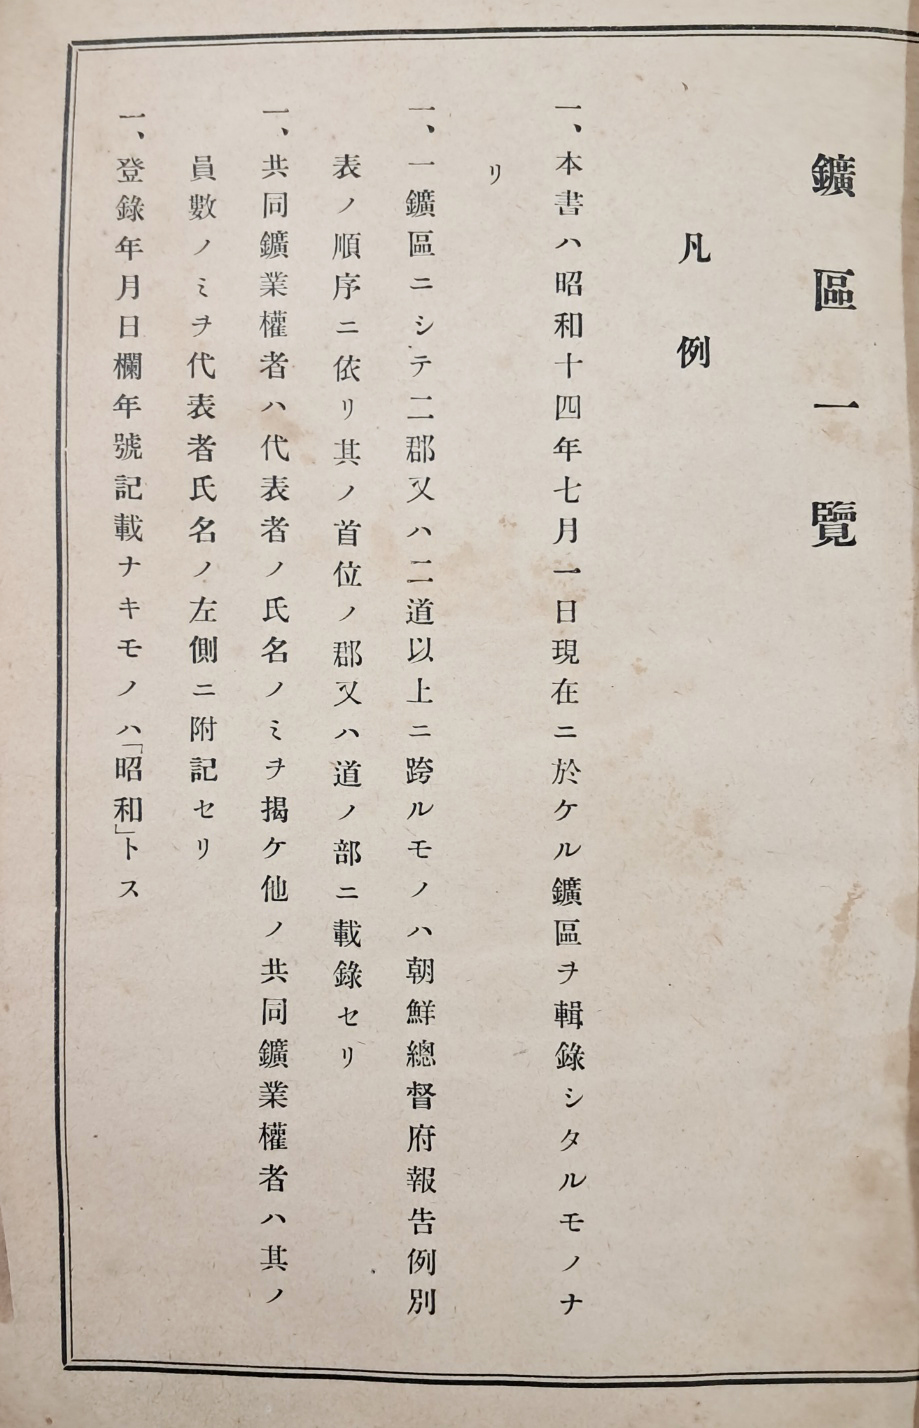 鑛區一覽
凡例
一、本書ハ昭和十四年七月一日現在ニ於ケル鑛區ヲ輯錄シタルモノナ
リ
一、一鑛區ニシテ二郡又ハ二道以上ニ跨ルモノハ朝鮮總督府報告例別
表ノ順序ニ依リ其ノ首位ノ郡又ハ道ノ部ニ載錄セリ
一、共同鑛業權者ハ代表者ノ氏名ノミヲ揭ケ他ノ共同鑛業權者ハ其ノ
員數ノミヲ代表者氏名ノ左側ニ附記セリ
一、登錄年月日欄年號記載ナキモノハ「昭和」トス